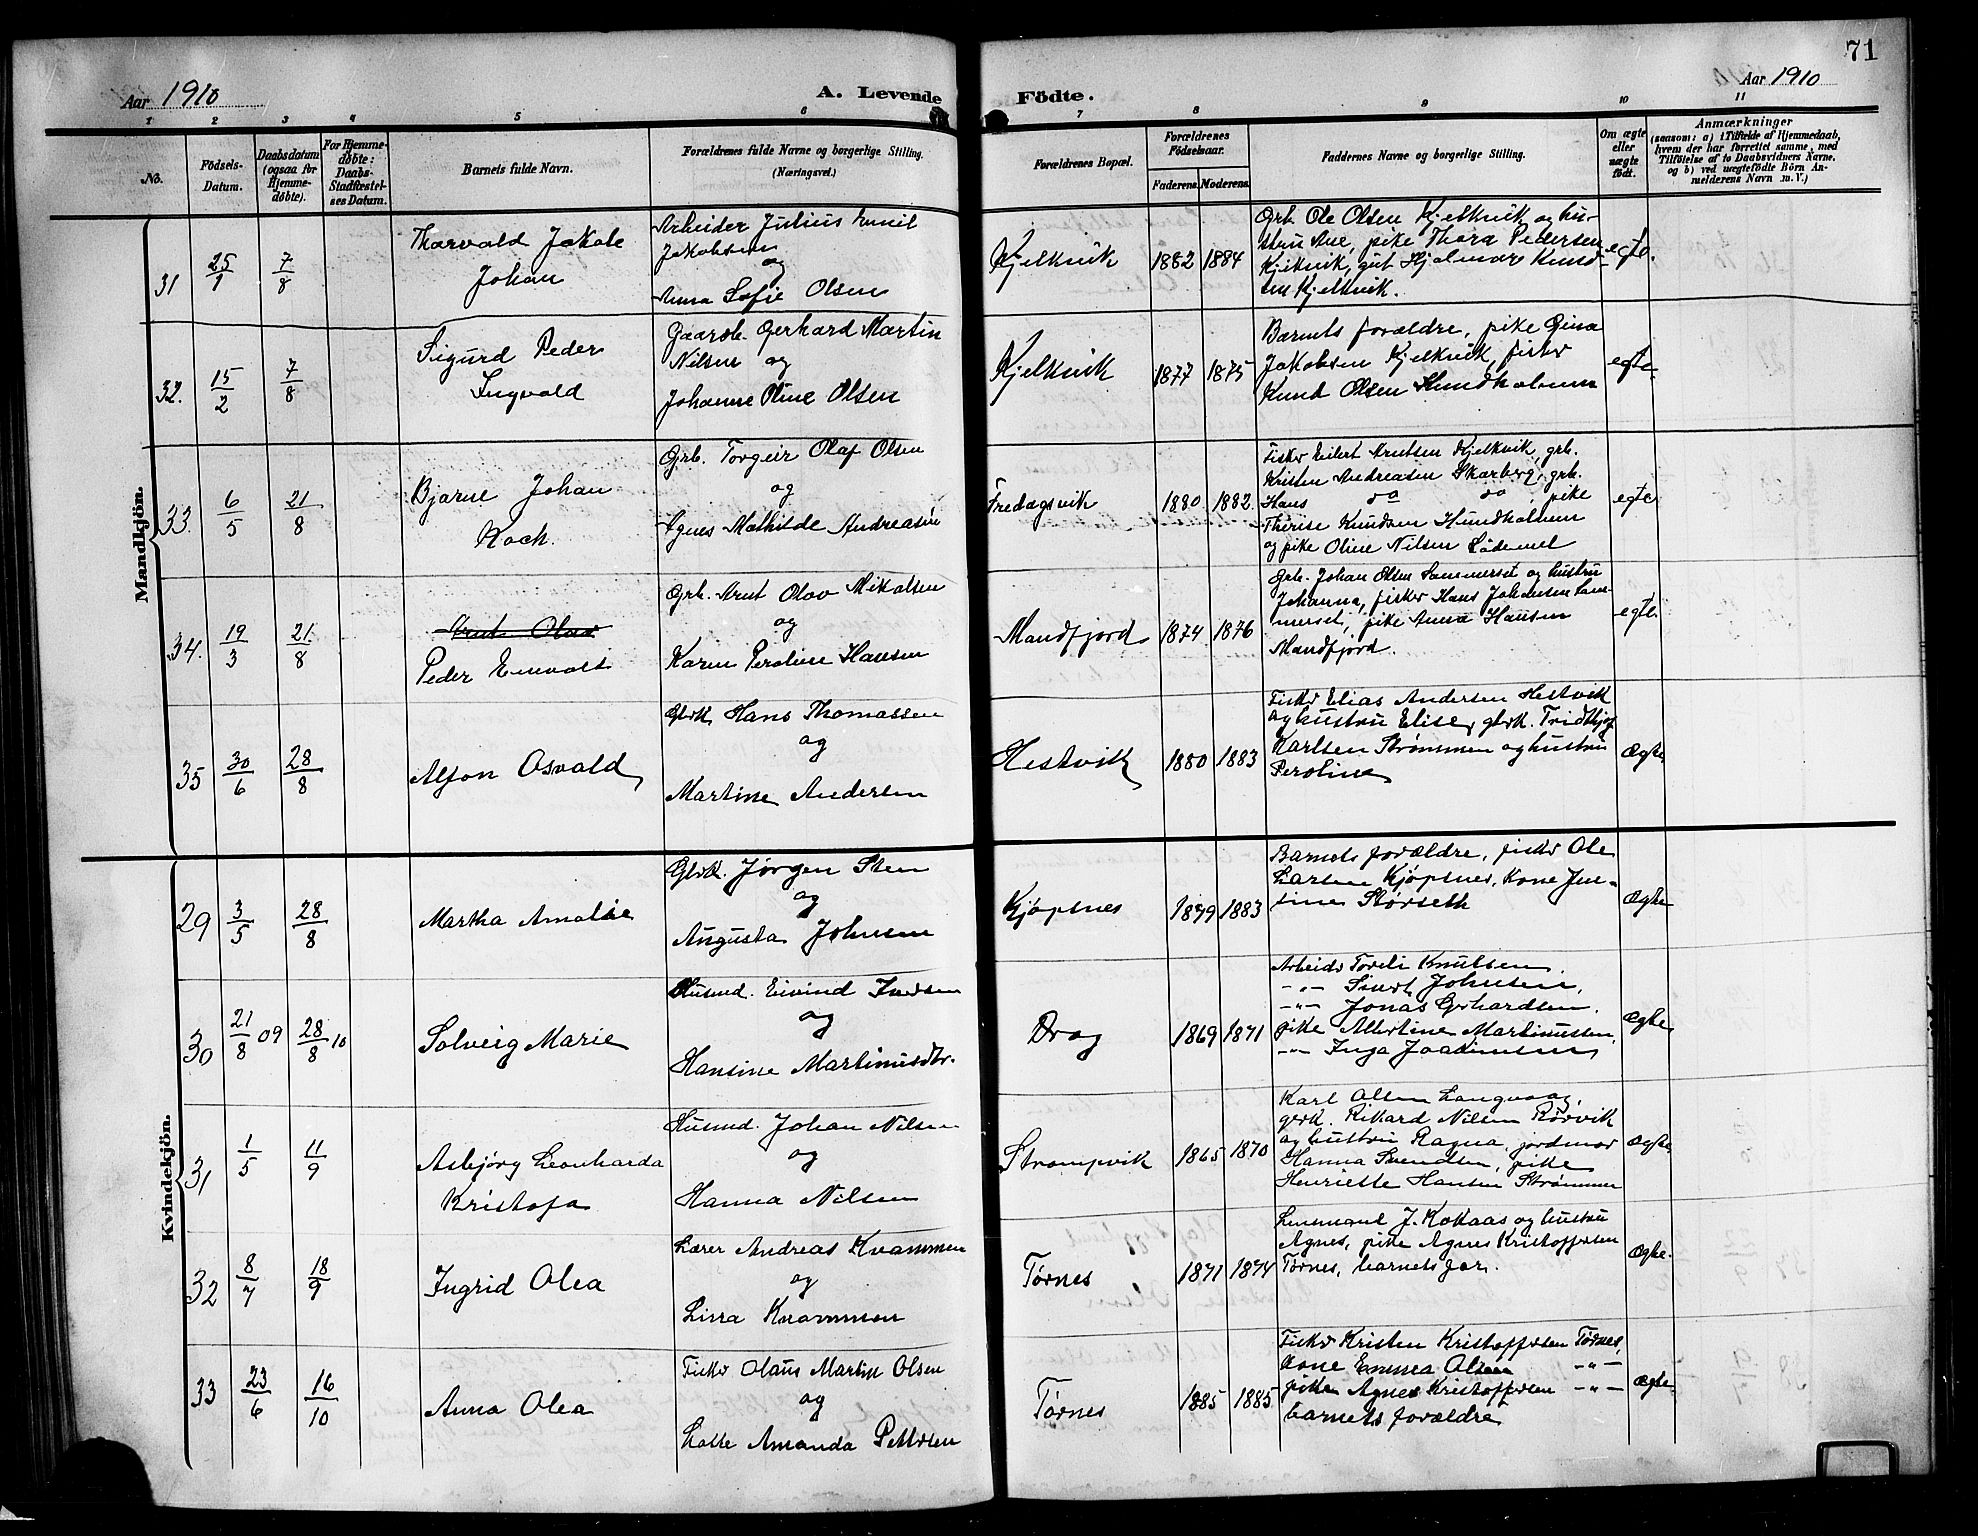 71
Aar 1910
A. Levende
Födte.
Aar 1910
1 2 3 4 5 6 7 8 9 10 11
No.
Födsels-
Datum.
Daabsdatum
(ogsaa for
Hjemme-
døbte).
For Hjemme-
døbte:
Daabs-
Stadfæstel-
ses Datum.
Barnets fulde Navn.
Forældrenes fulde Navne og borgerlige Stilling.
(Næringsvei.)
Forældrenes Bopæl.
Forældrenes
Fødselsaar.
Faderens. Moderens.
Faddernes Navne og borgerlige Stilling.
Om ægte
eller
uægte
født.
Anmærkninger
(saasom: a) i Tilfælde af Hjemmedaab,
hvem der har forrettet samme, med
Tilføielse af to Daabsvidners Navne,
og b) ved uægtefødte Börn An-
melderens Navn m. V.)
Mandkjön.
31
25/1
7/8
Thorvald Jakob
Johan
Arbeider Julius Emil
Jakobsen
og
Anna Sofie Olsen
Kjelkvik
1882
1884
Grb. Ole Olsen Kjelkvik og hu-
stru Ane, pike Thora Pedersen
Kjelkvik, gut Hjalmar Knud-
sen Kjelkvik.
egte.
32.
15/2
7/8
Sigurd Peder
Ingvald
Gaardb. Gerhard Martin
Nilsen og
Johanne Oline Olsen
Kjelkvik
1877
1875
Barnets forældre, pike Gina
Jakobsen Kjelkvik, fisker
Knud Olsen Hundholmen
egte.
33.
6/5
21/8
Bjarne Johan
Koch.
Grb. Torgeir Olaf Olsen
og
Agnes Mathilde Andreasen
Fredagsvik
1880
1882.
Fisker Eilert Arntsen Kjelkvik, grb.
Kristen Andreasen Skarberg, grb.
Hans do do, pike
Therise Knudsen Hundholmen
og pike Oline Nilsen
egte
34.
19/3
21/8
Arnt Olav
Peder Enevald
Grb. Arnt Olav Mikalsen
og
Karen Peroline Hansen
Mandfjord
1874
1876
Grb. Johan Olsen Sommerset og hustru
Johanna, fisker Hans Johansen Som-
merset, pike Anna Hansen
Mandfjord.
egte
35
30/6
28/8
Alfon Osvald
Gbrk. Hans Thomassen
og
Martine Andersen
Hestvik
1880
1883
Fisker Elias Andersen Hestvik
og hustru Elise, gbrk. Fridthjof
Karlsen Strømmen og hustru
Peroline
Ægte
Kvindekjön.
29
3/5
28/8
Martha Amalie
Gbrk. Jørgen Sten
og
Augusta Johnsen
Kjøpsnes
1879
1883
Barnets forældre, fisker Ole
Larsen Kjøpsnes, Kone Jen-
sine Størseth
Ægte
30
21/8 09
28/8 10
Solveig Marie
Husmd. Eivind Iversen
og
Hansine Martinusdtr.
Drag
1869
1871
Arbeider Toreli Knutsen,
-"- Sivert Johnsen,
-"- Jonas Gerhardsen,
pike Albertine Martinussen,
-"- Inga Joakimsen
Ægte
31
1/5
11/9
Asbjørg Leonharda
Kristofa
Husmd. Johan Nilsen
og
Hanna Nilsen
Strompvik
1865
1870
Karl Olsen Langvaag,
gbrk. Rikard Nilsen Rørvik
og hustru Ragna, jordmor
Hanna Svendsen, pike
Henriette Hansen Strømmen
Ægte
32
8/7
18/9
Ingrid Olea
Lærer Andreas Kvammen
og
Lina Kvammen
Tørnes
1871
1874
Lensmand J. Kokaas og hustru
Agnes, pike Agnes Kristoffersen
Tørnes, barnets far.
Ægte.
33
23/6
16/10
Anna Olea
Fisker Olaus Martin Olsen
og
Lotte Amanda Pettersen
Tørnes
1885
1885
Fisker Kristen Kristoffersen Tørnes,
Kone Emma Olsen -"-
piken Agnes Kristoffersen -"-
barnets forældre
Ægte